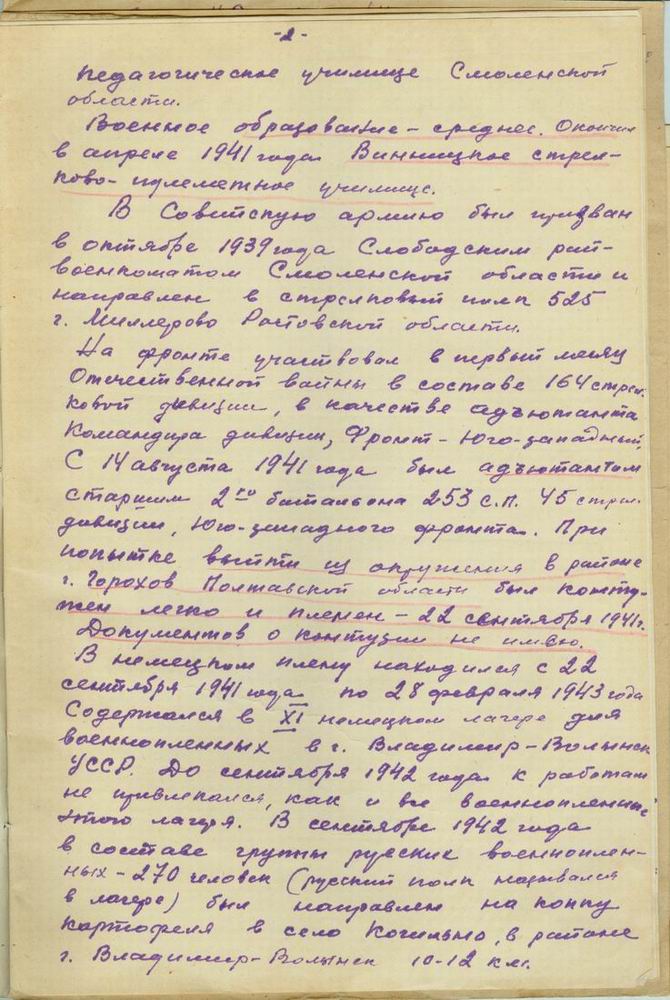 -2-
педагогическое училище Смоленской
области.
Военное образование - среднее. Окончил
в апреле 1941 года Винницкое стрел-
ково-пулеметное училище.
В Советскую армию был призван
в октябре 1939 года Слободским рай-
военкоматом Смоленской области и
направлен в стрелковый полк 525
г. Миллерово Ростовской области.
На фронте участвовал в первый месяц
Отечественной войны в составе 164 стрел-
ковой дивизии, в качестве адъютанта
командира дивизии, Фронт - Юго-западный.
С 14 августа 1941 года был адъютантом
старшим 2го батальона 253 с.п. 45 стрел.
дивизии, Юго-западного фронта. При
попытке выйти из окружения в районе
г. Горохов Полтавской области был конту-
жен легко и пленен - 22 сентября 1941 г.
Документов о контузии не имею.
В немецком плену находился с 22
сентября 1941 года по 28 февраля 1943 года
Содержался в XI немецком лагере для
военнопленных в г. Владимир-Волынск
УССР. До сентября 1942 года к работам
не привлекался, как и все военнопленные
этого лагеря. В сентябре 1942 года
в составе группы русских военноплен-
ных - 270 человек (русский полк назывался
в лагере) был направлен на копку
картофеля в село Когильно, в районе
г. Владимир-Волынск 10-12 км.